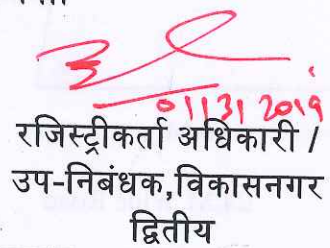 01131 2019
रजिस्ट्रीकर्ता अधिकारी /
उप-निबंधक,विकासनगर
द्वितीय